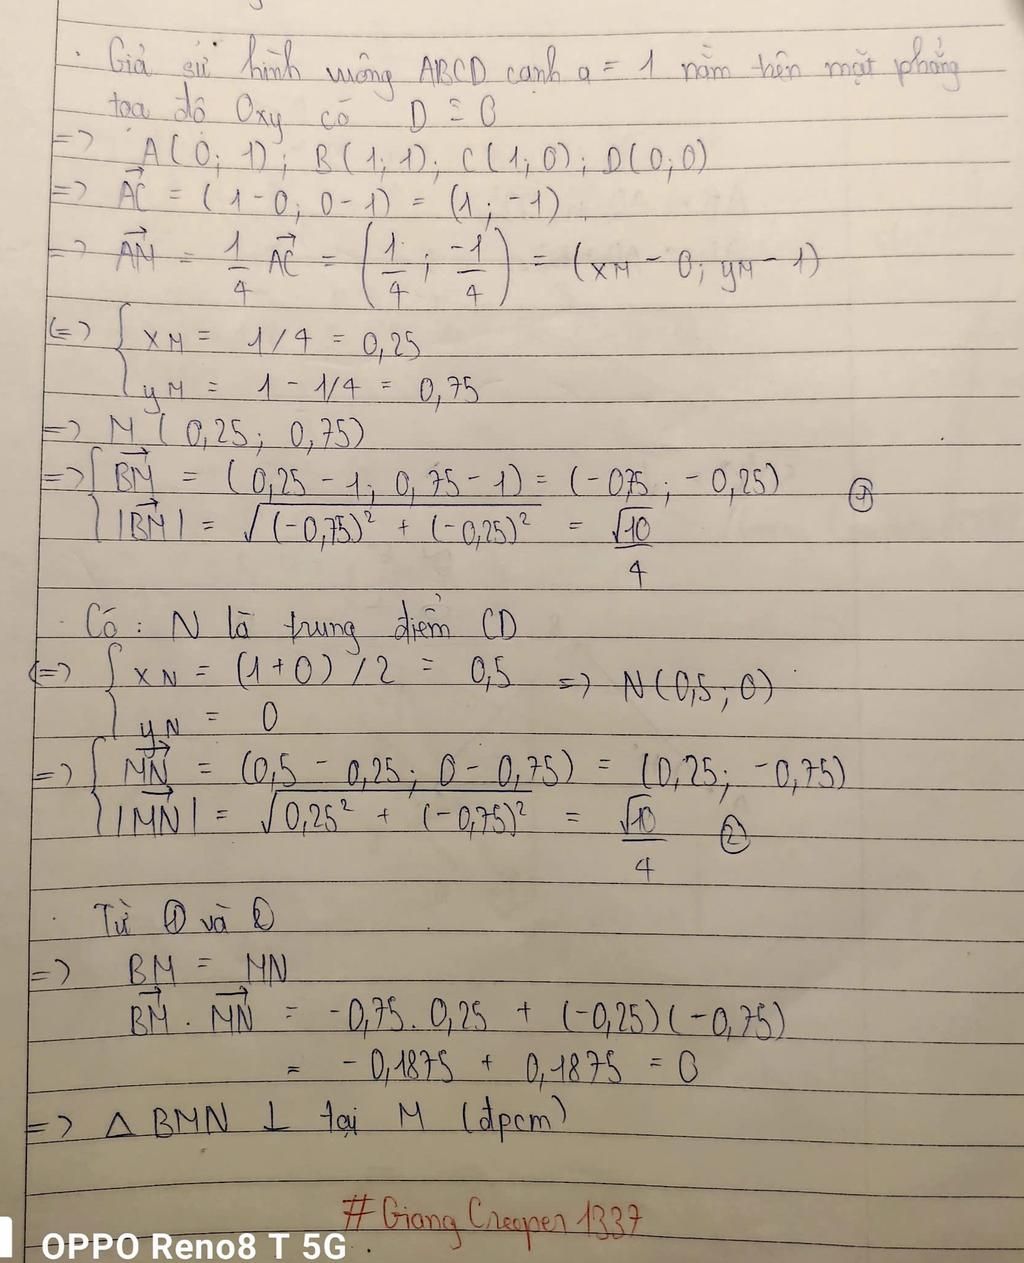 . Giả sử hình vuông ABCD cạnh a = 1 nằm trên mặt phẳng
tọa độ Oxy có D ≡ O
=> A(0; 1); B(1; 1); C(1; 0); D(0; 0)
=> AC→ = (1 - 0; 0 - 1) = (1; -1).
=> AM→ = 1/4 AC→ = (1/4; -1/4) = (xM - 0; yM - 1)
(=> { xM = 1/4 = 0,25
yM = 1 - 1/4 = 0,75
=> M (0,25; 0,75)
=> { BM→ = (0,25 - 1; 0,75 - 1) = (-075; -0,25)
|BM→| = √((-0,75)² + (-0,25)²) = √10/4 ①
. Có: N là trung điểm CD
(=> { xN = (1 + 0) / 2 = 0,5 => N(0,5; 0)
yN = 0
=> { MN→ = (0,5 - 0,25; 0 - 0,75) = (0,25; -0,75)
|MN→| = √(0,25² + (-0,75)²) = √10/4 ②
. Từ ① và ②
=> BM = MN
BM→ . MN→ = -0,75. 0,25 + (-0,25)(-0,75)
= -0,1875 + 0,1875 = 0
=> Δ BMN ⊥ tại M (đpcm)
# Giang Creeper 1337
OPPO Reno8 T 5G